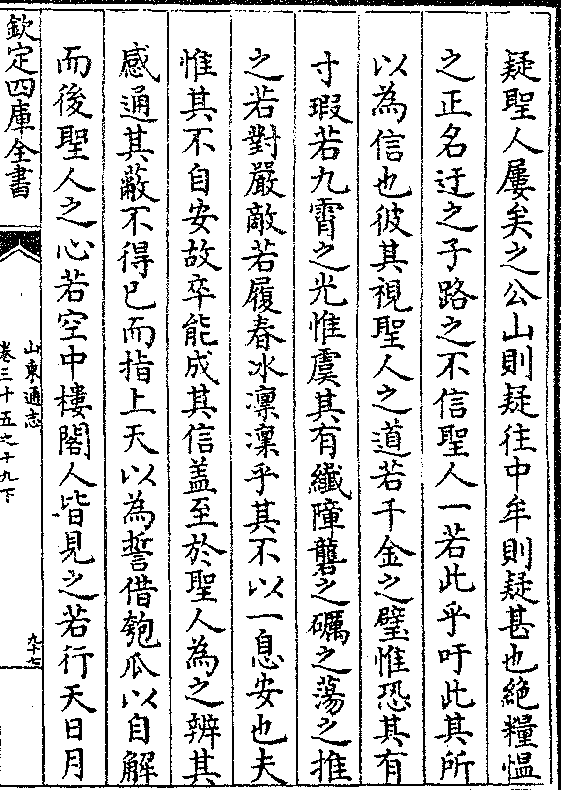 疑聖人屢矣之公山則疑往中牟則疑甚也絶糧愠
之正名迂之子路之不信聖人一若此乎吁此其所
以為信也彼其視聖人之道若千金之璧惟恐其有
寸瑕若九霄之光惟虞其有纎障礱之礪之蕩之推
之若對嚴敵若履春冰凛凛乎其不以一息安也夫
惟其不自安故卒能成其信盖至於聖人為之辨其
感通其蔽不得已而指上天以為誓借匏瓜以自解
而後聖人之心若空中樓閣人皆見之若行天日月
欽定四庫全書
山東通志
卷三十五之十九下
九十七